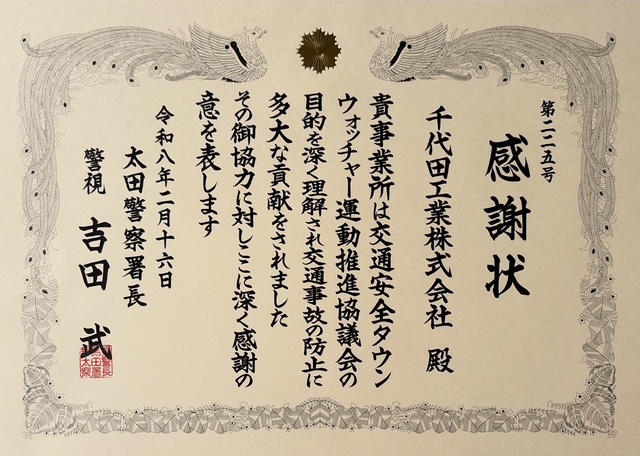 第二二五号
感謝状
千代田工業株式会社 殿
貴事業所は交通安全タウン
ウォッチャー運動推進協議会の
目的を深く理解され交通事故の防止に
多大な貢献をされました
その御協力に対しここに深く感謝の
意を表します
令和八年二月十六日
太田警察署長
警視 吉田 武